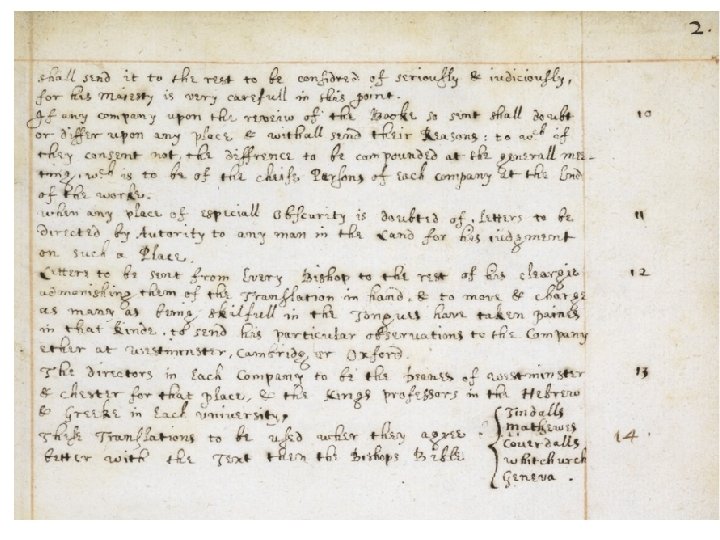 2.
shall send it to the rest to be considred of seriously & iudiciously,
for his Maiesty is very carefull in this point.
If any company upon the review of the Booke so sent shall doubt 10
or differ upon any place & withall send their Reasons: to wch if
they consent not, the diffrence to be compounded at the generall mee-
ting, wch is to be of the cheife Persons of each company at the End
of the worke.
When any place of especiall obscurity is doubted of, letters to be 11
directed by Autority to any man in the Land for his iudgment
on such a Place.
Letters to be sent from Every Bishop to the rest of his cleargie 12
admonishing them of the Translation in hand, & to move & charge
as many as being skilfull in the Tongues have taken paines
in that kinde, to send his particular observations to the Company
ether at Westminster, Cambridg or Oxford.
The directors in Each Company to be the Deanes of Westminster 13
& Chester for that place, & the Kings professors in the Hebrew
& Greeke in Each university,
These Translations to be used when they agree 14.
better with the Text then the Bishops Bible
Tindalls
Mathewes
Coverdalls
Whitchurch
Geneva.